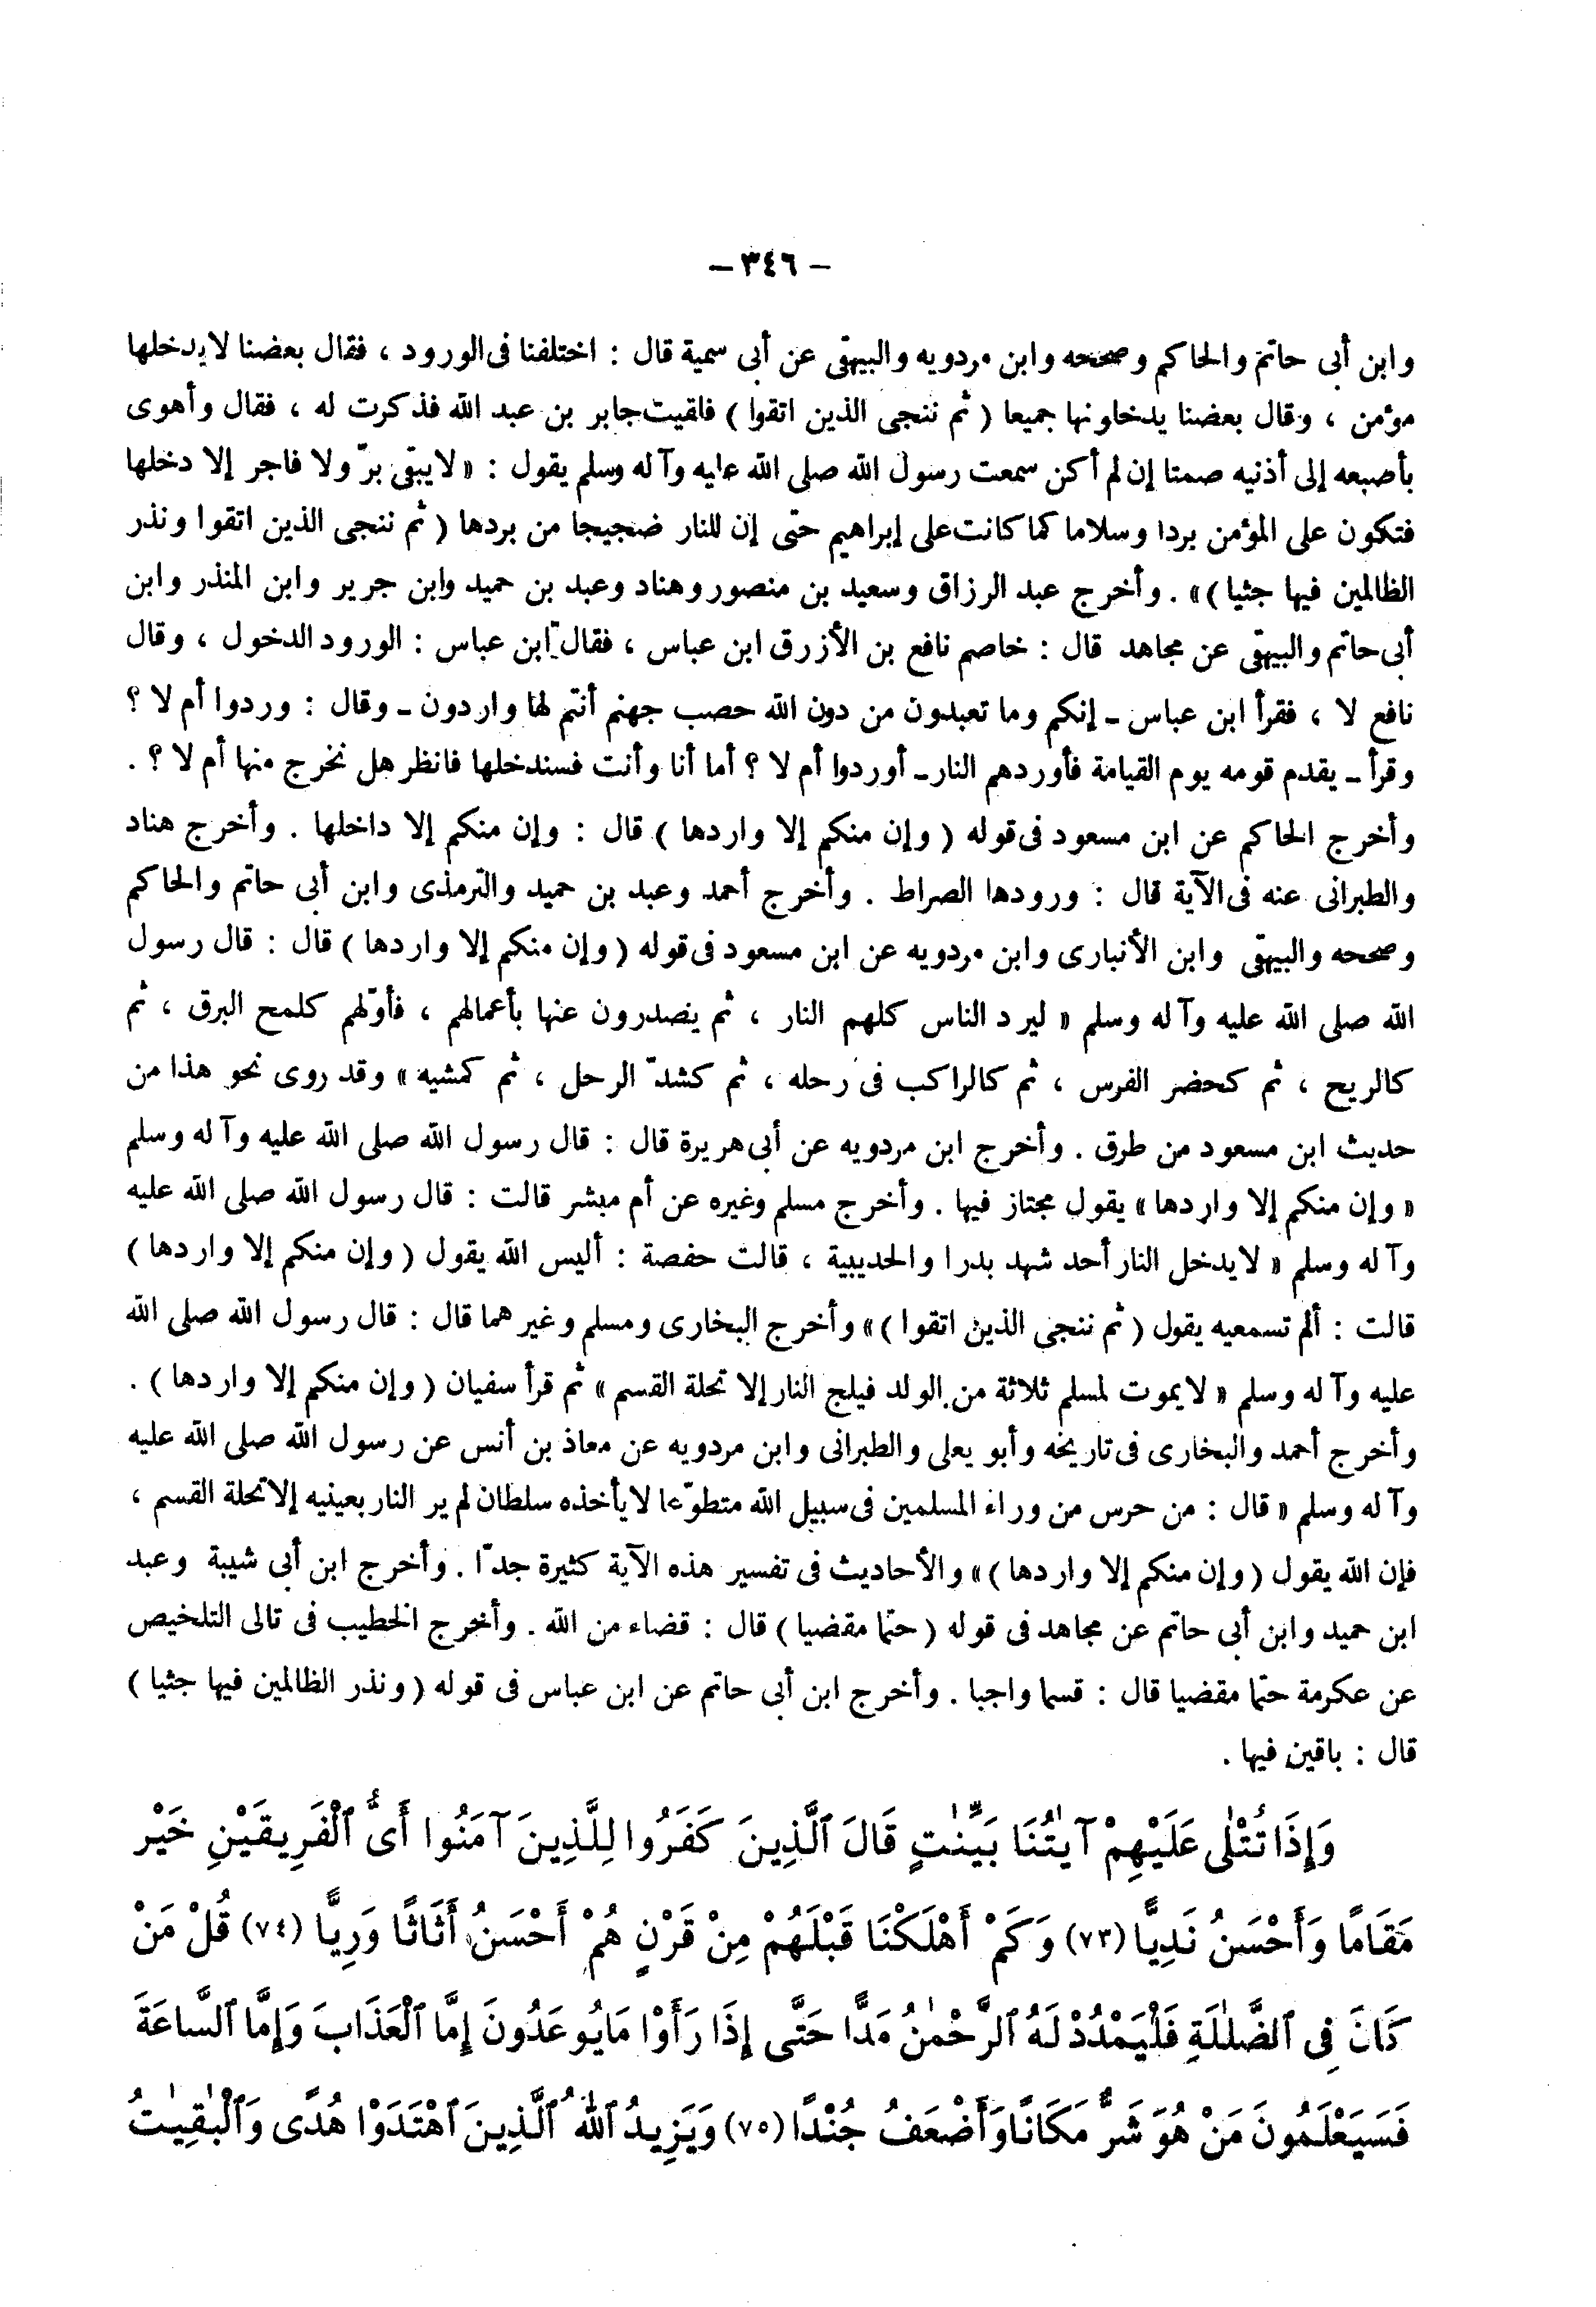 – ٣٤٦ –
وابن أبى حاتم والحاكم وصححه وابن مردويه والبيهقى عن أبى سمية قال : اختلفنا فى الورود ، فقال بعضنا لا يدخلها
مؤمن ، وقال بعضنا يدخلونها جميعا ( ثم ننجى الذين اتقوا ) فلقيت جابر بن عبد الله فذكرت له ، فقال وأهوى
بأصبعه إلى أذنيه صمتا إن لم أكن سمعت رسول الله صلى الله عليه وآله وسلم يقول : « لا يبقى برّ ولا فاجر إلا دخلها
فتكون على المؤمن بردا وسلاما كما كانت على إبراهيم حتى إن للنار ضجيجا من بردها ( ثم ننجى الذين اتقوا ونذر
الظالمين فيها جثيا ) » . وأخرج عبد الرزاق وسعيد بن منصور وهناد وعبد بن حميد وابن جرير وابن المنذر وابن
أبى حاتم والبيهقى عن مجاهد قال : خاصم نافع بن الأزرق ابن عباس ، فقال ابن عباس : الورود الدخول ، وقال
نافع لا ، فقرأ ابن عباس ـ إنكم وما تعبدون من دون الله حصب جهنم أنتم لها واردون ـ وقال : وردوا أم لا ؟
وقرأ ـ يقدم قومه يوم القيامة فأوردهم النار ـ أوردوا أم لا ؟ أما أنا وأنت فسندخلها فانظر هل نخرج منها أم لا ؟ .
وأخرج الحاكم عن ابن مسعود فى قوله ( وإن منكم إلا واردها ) قال : وإن منكم إلا داخلها . وأخرج هناد
والطبرانى عنه فى الآية قال : ورودها الصراط . وأخرج أحمد وعبد بن حميد والترمذى وابن أبى حاتم والحاكم
وصححه والبيهقى وابن الأنبارى وابن مردويه عن ابن مسعود فى قوله ( وإن منكم إلا واردها ) قال : قال رسول
الله صلى الله عليه وآله وسلم « ليرد الناس كلهم النار ، ثم يصدرون عنها بأعمالهم ، فأوّلهم كلمح البرق ، ثم
كالريح ، ثم كحضر الفرس ، ثم كالراكب فى رحله ، ثم كشدّ الرحل ، ثم كمشيه » وقد روى نحو هذا من
حديث ابن مسعود من طرق . وأخرج ابن مردويه عن أبى هريرة قال : قال رسول الله صلى الله عليه وآله وسلم
« وإن منكم إلا واردها » يقول مجتاز فيها . وأخرج مسلم وغيره عن أم مبشر قالت : قال رسول الله صلى الله عليه
وآله وسلم « لا يدخل النار أحد شهد بدرا والحديبية ، قالت حفصة : أليس الله يقول ( وإن منكم إلا واردها )
قالت : ألم تسمعيه يقول ( ثم ننجى الذين اتقوا ) » وأخرج البخارى ومسلم وغيرهما قال : قال رسول الله صلى الله
عليه وآله وسلم « لا يموت لمسلم ثلاثة من الولد فيلج النار إلا تحلة القسم » ثم قرأ سفيان ( وإن منكم إلا واردها ) .
وأخرج أحمد والبخارى فى تاريخه وأبو يعلى والطبرانى وابن مردويه عن معاذ بن أنس عن رسول الله صلى الله عليه
وآله وسلم « قال : من حرس من وراء المسلمين فى سبيل الله متطوّعا لا يأخذه سلطان لم ير النار بعينيه إلا تحلة القسم ،
فإن الله يقول ( وإن منكم إلا واردها ) » والأحاديث فى تفسير هذه الآية كثيرة جدّا . وأخرج ابن أبى شيبة وعبد
ابن حميد وابن أبى حاتم عن مجاهد فى قوله ( حتما مقضيا ) قال : قضاء من الله . وأخرج الخطيب فى تالى التلخيص
عن عكرمة حتما مقضيا قال : قسما واجبا . وأخرج ابن أبى حاتم عن ابن عباس فى قوله ( ونذر الظالمين فيها جثيا )
قال : باقين فيها .
وَإِذَا تُتْلَىٰ عَلَيْهِمْ آيَٰتُنَا بَيِّنَٰتٍ قَالَ ٱلَّذِينَ كَفَرُوا لِلَّذِينَ آمَنُوا أَىُّ ٱلْفَرِيقَيْنِ خَيْر
مَّقَامًا وَأَحْسَنُ نَدِيًّا (٧٣) وَكَمْ أَهْلَكْنَا قَبْلَهُمْ مِنْ قَرْنٍ هُمْ أَحْسَنُ أَثَاثًا وَرِيًّا (٧٤) قُلْ مَنْ
كَانَ فِى ٱلضَّلَٰلَةِ فَلْيَمْدُدْ لَهُ ٱلرَّحْمَٰنُ مَدًّا حَتَّى إِذَا رَأَوْا مَايُوعَدُونَ إِمَّا ٱلْعَذَابَ وَإِمَّا ٱلسَّاعَةَ
فَسَيَعْلَمُونَ مَنْ هُوَ شَرٌّ مَكَانًا وَأَضْعَفُ جُنْدًا (٧٥) وَيَزِيدُ ٱللَّهُ ٱلَّذِينَ ٱهْتَدَوْا هُدًى وَٱلْبَٰقِيَٰتُ